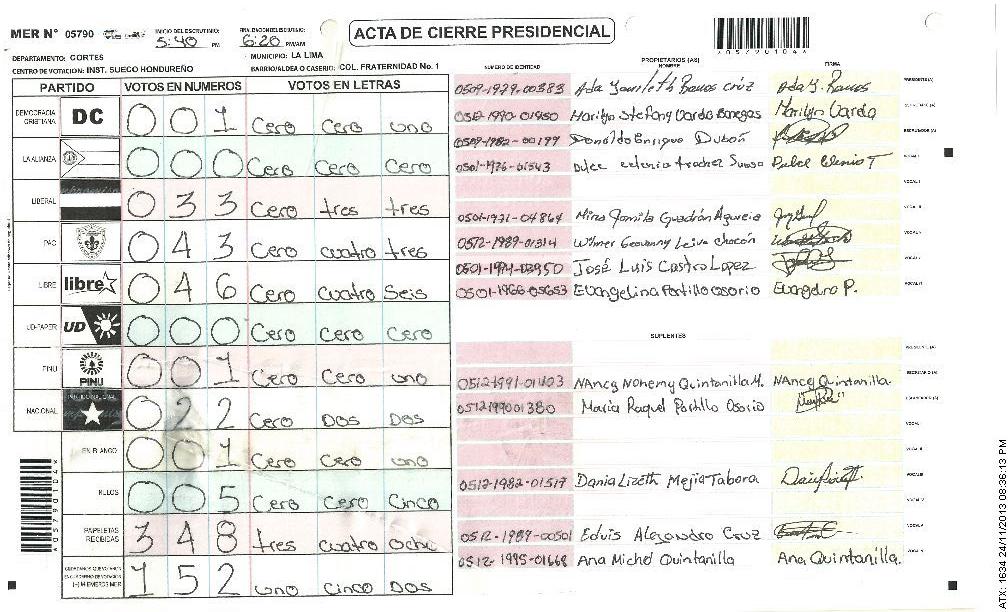 MER N° 05790
INICIO DEL ESCRUTINIO: 5:40 PM
FINALIZACION DEL ESCRUTINIO: 6:20 PM/AM
ACTA DE CIERRE PRESIDENCIAL
*05790104*
DEPARTAMENTO: CORTES
MUNICIPIO: LA LIMA
CENTRO DE VOTACION: INST. SUECO HONDUREÑO
BARRIO/ALDEA O CASERIO: COL. FRATERNIDAD No. 1
PARTIDO VOTOS EN NUMEROS VOTOS EN LETRAS
DEMOCRACIA CRISTIANA DC 0 0 1 Cero Cero uno
LA ALIANZA 0 0 0 Cero Cero Cero
LIBERAL 0 3 3 Cero tres tres
PAC 0 4 3 Cero cuatro tres
LIBRE libre 0 4 6 Cero Cuatro Seis
UD-FAPER UD 0 0 0 Cero Cero Cero
PINU PINU 0 0 1 Cero Cero uno
NACIONAL PARTIDO NACIONAL 0 2 2 Cero Dos Dos
EN BLANCO 0 0 1 Cero Cero uno
NULOS 0 0 5 Cero Cero Cinco
PAPELETAS RECIBIDAS 3 4 8 tres cuatro Ocho
1 5 2 uno Cinco Dos
*05790104*
PROPIETARIOS (AS)
NUMERO DE IDENTIDAD NOMBRE FIRMA
0509-1979-00383 Ada Yamileth Ramos cruz Ada Y. Ramos PRESIDENTE(A)
0512-1990-01950 Marilyn Stefany Varda Banegas Marilyn Varda SECRETARIO (A)
0509-1982-00197 Donaldo Enrique Dubón ESCRUTADOR (A)
0501-1976-01543 Dulce T VOCAL I
VOCAL II
0501-1971-04864 VOCAL III
0512-1989-01314 Wilmer Geovanny Leiva chacón
José Luis Castro Lopez
0501-1966-05653 Evangelina Portillo osorio Evangelina P.
SUPLENTES
PRESIDENTE (A)
0512-1991-01403 Nancy Nohemy Quintanilla M. Nancy Quintanilla. SECRETARIO (A)
0512199001380 Maria Raquel Portillo Osorio ESCRUTADOR (A)
0512-1982-01517 Dania Lizeth Mejia Tabora
0512-1989-00501 Edvis Alejandro Cruz
0512-1995-01668 Ana Michel Quintanilla Ana Quintanilla.
ATX: 1634 24/11/2013 08:36:13 PM